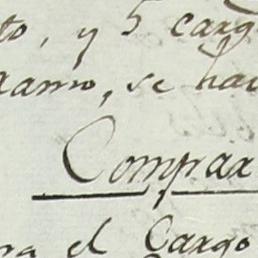 to, y 5 carg
xamo, se hac
Compax
ra el Cargo